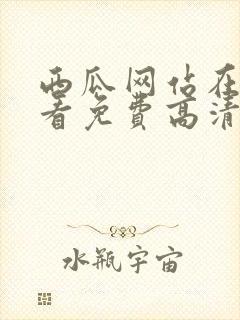 西瓜网站在
看免费高清
水瓶宇宙